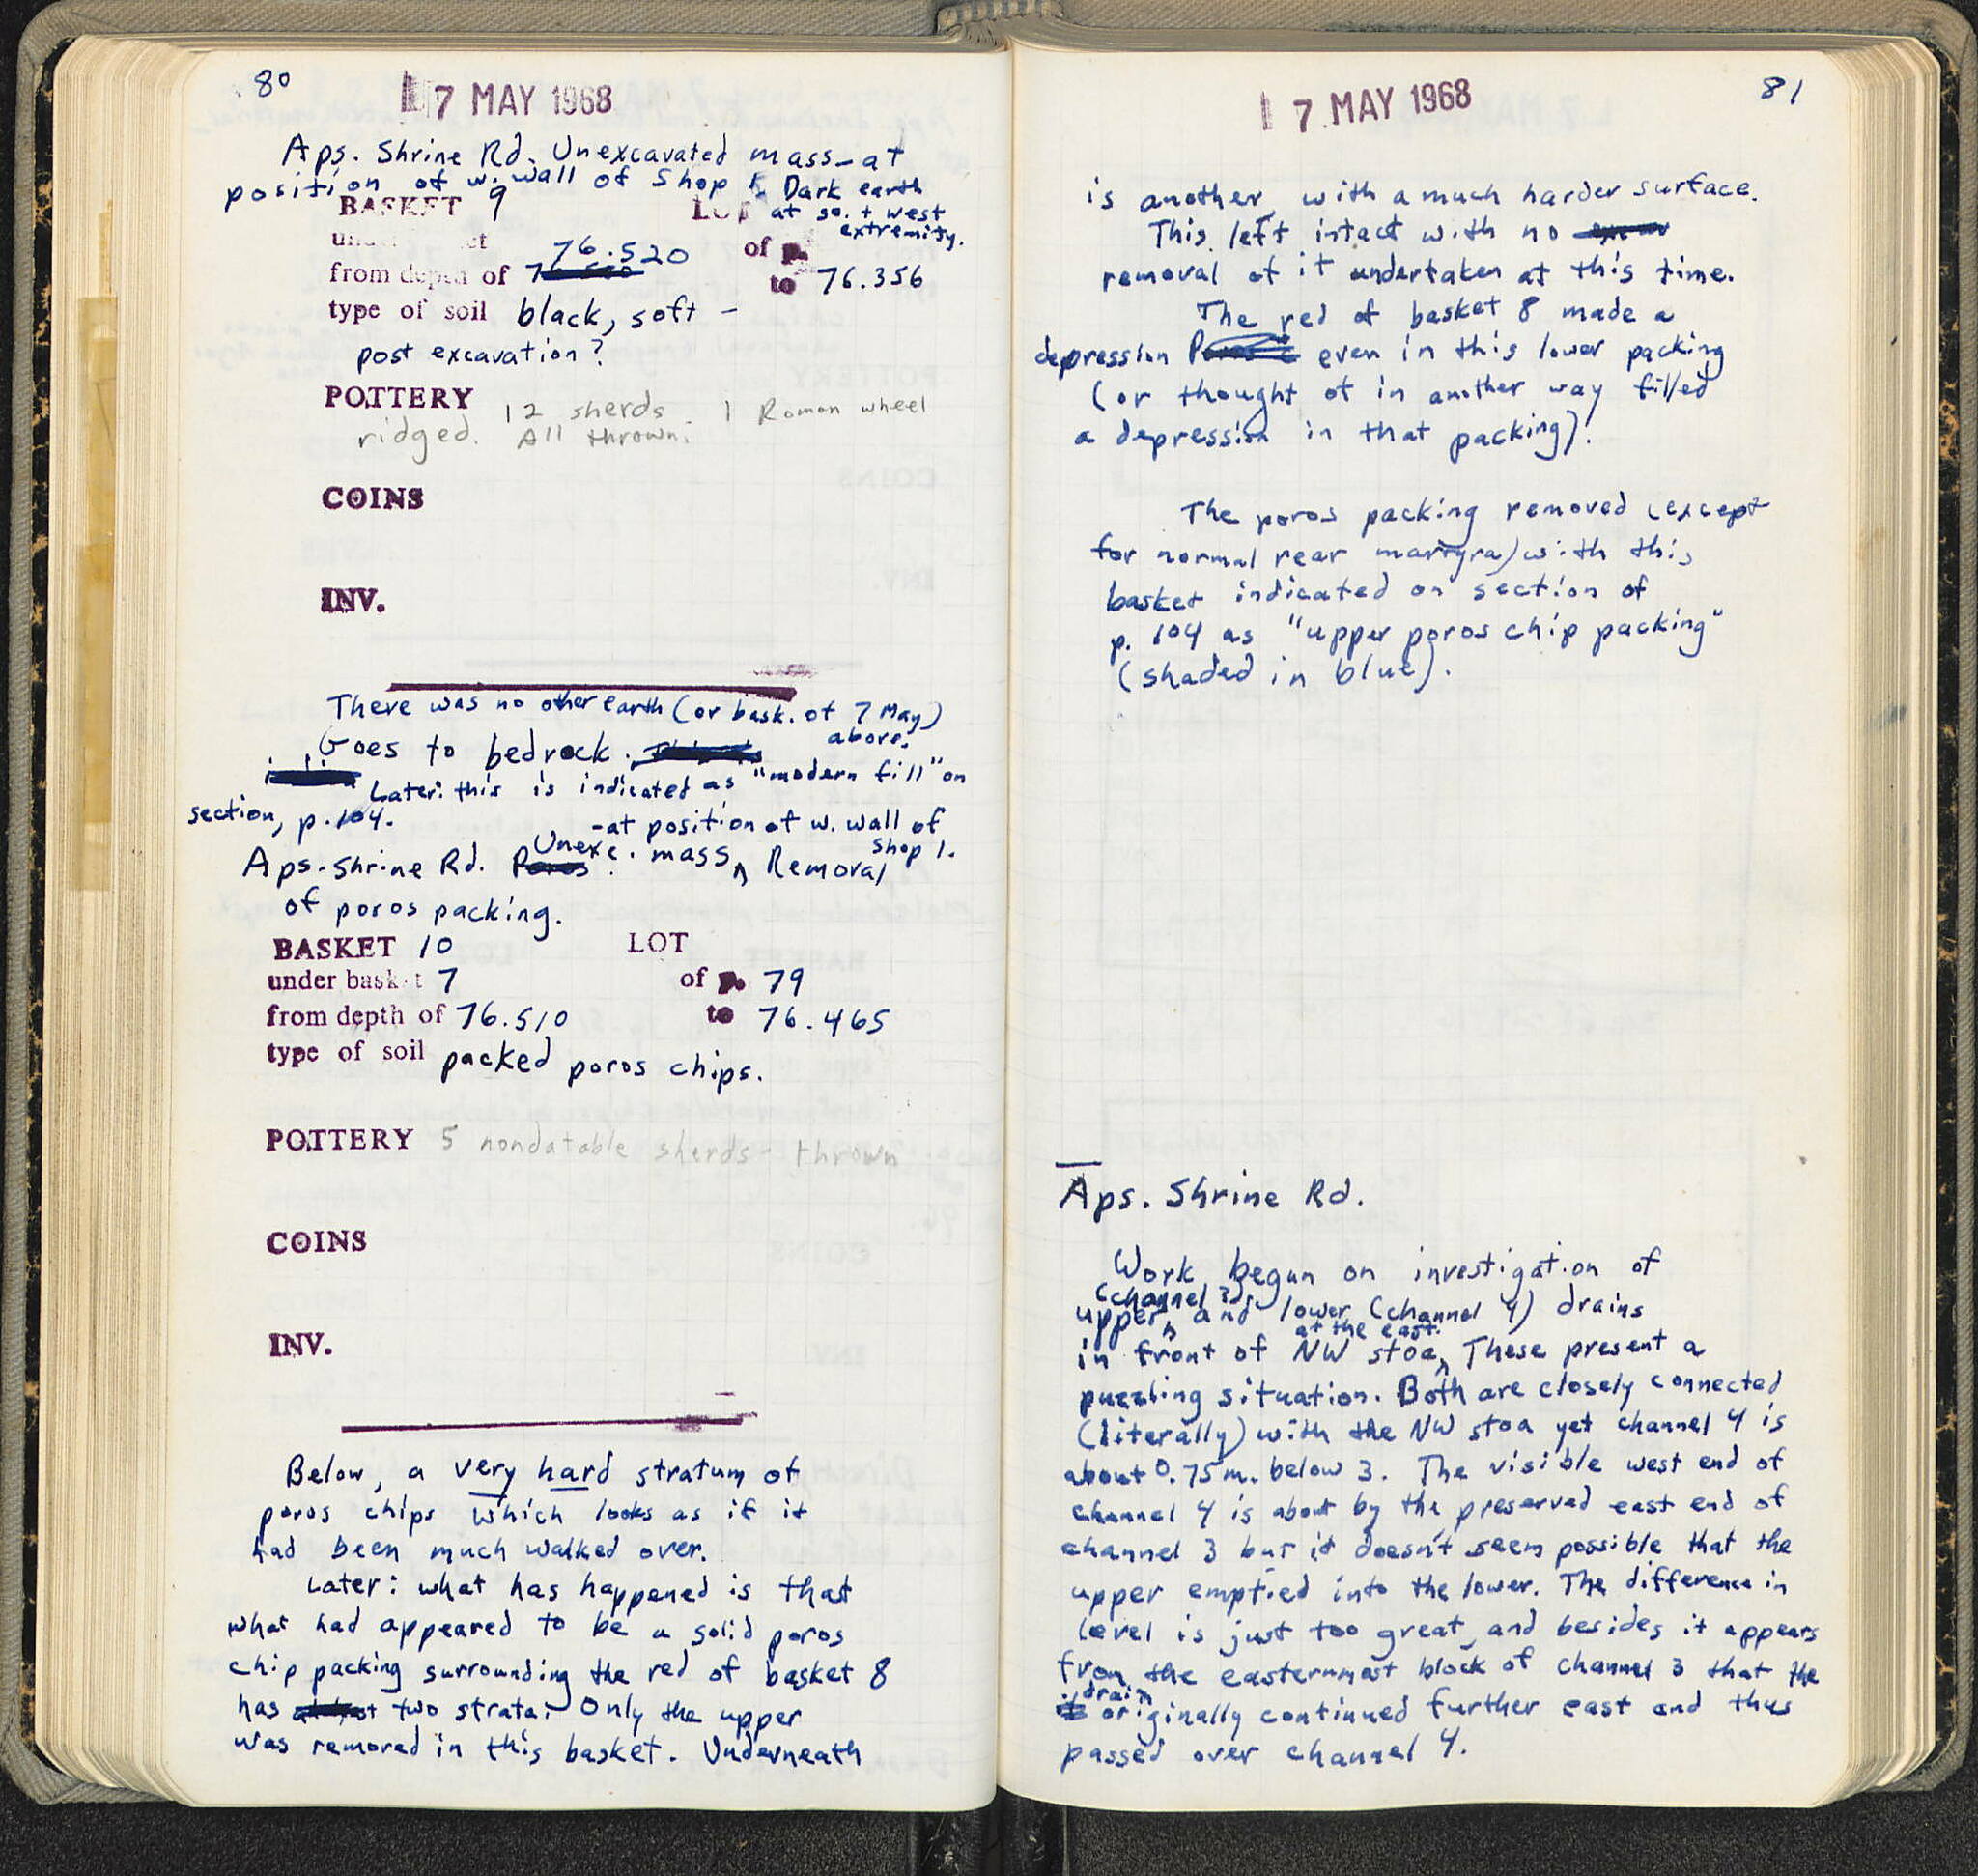 80
7 MAY 1968
Aps. Shrine Rd. Unexcavated mass - at
position of w. wall of Shop 1. Dark earth
at so. + west
extremity.
BASKET 9 LOT
under basket of p.
from depth of 76.520 to 76.356
type of soil black, soft -
post excavation?
POTTERY 12 sherds. 1 Roman wheel
ridged. All thrown.
COINS
INV.
There was no other earth (or bask. of 7 May)
above.
Goes to bedrock.
Later: this is indicated as "modern fill" on
section, p. 104.
-at position of w. wall of
Shop 1.
Aps. Shrine Rd. Poros Unexc. mass ^ Removal
of poros packing.
BASKET 10 LOT
under basket 7 of p. 79
from depth of 76.510 to 76.465
type of soil packed poros chips.
POTTERY 5 nondatable sherds - thrown
COINS
INV.
Below, a very hard stratum of
poros chips which looks as if it
had been much walked over.
Later: what has happened is that
what had appeared to be a solid poros
chip packing surrounding the red of basket 8
has two strata: Only the upper
was removed in this basket. Underneath
81
7 MAY 1968
is another, with a much harder surface.
This left intact with no
removal of it undertaken at this time.
The red of basket 8 made a
depression even in this lower packing
(or thought of in another way filled
a depression in that packing).
The poros packing removed (except
for normal rear martyra) with this
basket indicated on section of
p. 104 as "upper poros chip packing"
(shaded in blue).
Aps. Shrine Rd.
Work begun on investigation of
(channel 3)
upper ^ and lower (channel 4) drains
at the east.
in front of NW stoa ^ These present a
puzzling situation. Both are closely connected
(literally) with the NW stoa yet channel 4 is
about 0.75 m. below 3. The visible west end of
channel 4 is about by the preserved east end of
channel 3 but it doesn't seem possible that the
upper emptied into the lower. The difference in
level is just too great, and besides it appears
from the easternmost block of channel 3 that the
drain
it originally continued further east and thus
passed over channel 4.